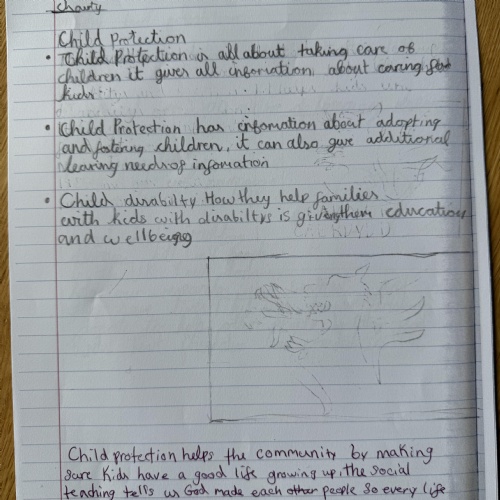 Charity
Child Protection
• Child Protection is all about taking care of
children it gives all information about caring for
kids
• Child Protection has infomation about adopting
and fostering children, it can also give additional
learing needs of infomation
• Child disabilty How they help families
with kids with disabiltys is giving them education
and wellbeing
Child protection helps the community by making
sure kids have a good life growing up, the social
teaching tells us God made each other people so every life